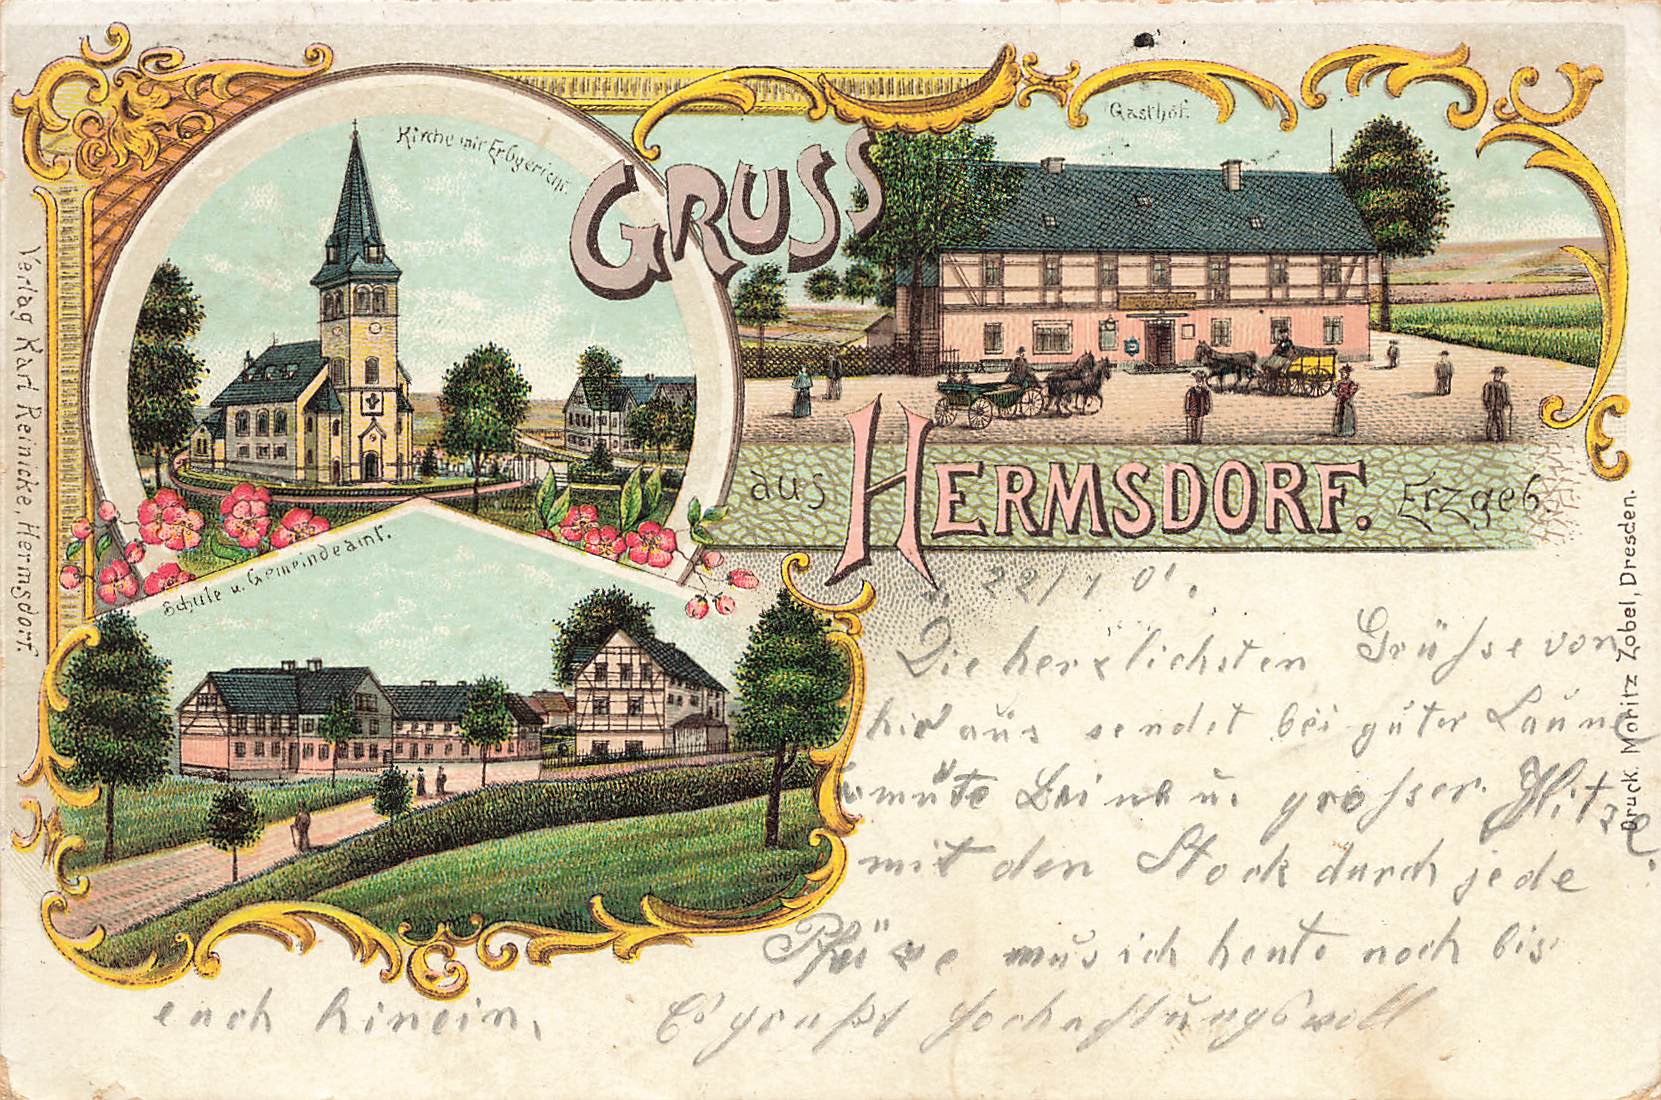 Kirche mit Erbgericht.
GRUSS
Gasthof.
aus HERMSDORF. Erzgeb.
Schule u. Gemeindeamt.
Verlag Karl Reinicke, Hermsdorf.
Druck. Moritz Zobel, Dresden.
22/7 01.
Die herzlichsten Grüsse von
hir aus sendet bei guter Laune
müde Beine u. grosser Hitze.
mit den Stock durch jede
Pfüze mus ich heute noch bis
euch hinein,
Es grüßt Hochachtungsvoll